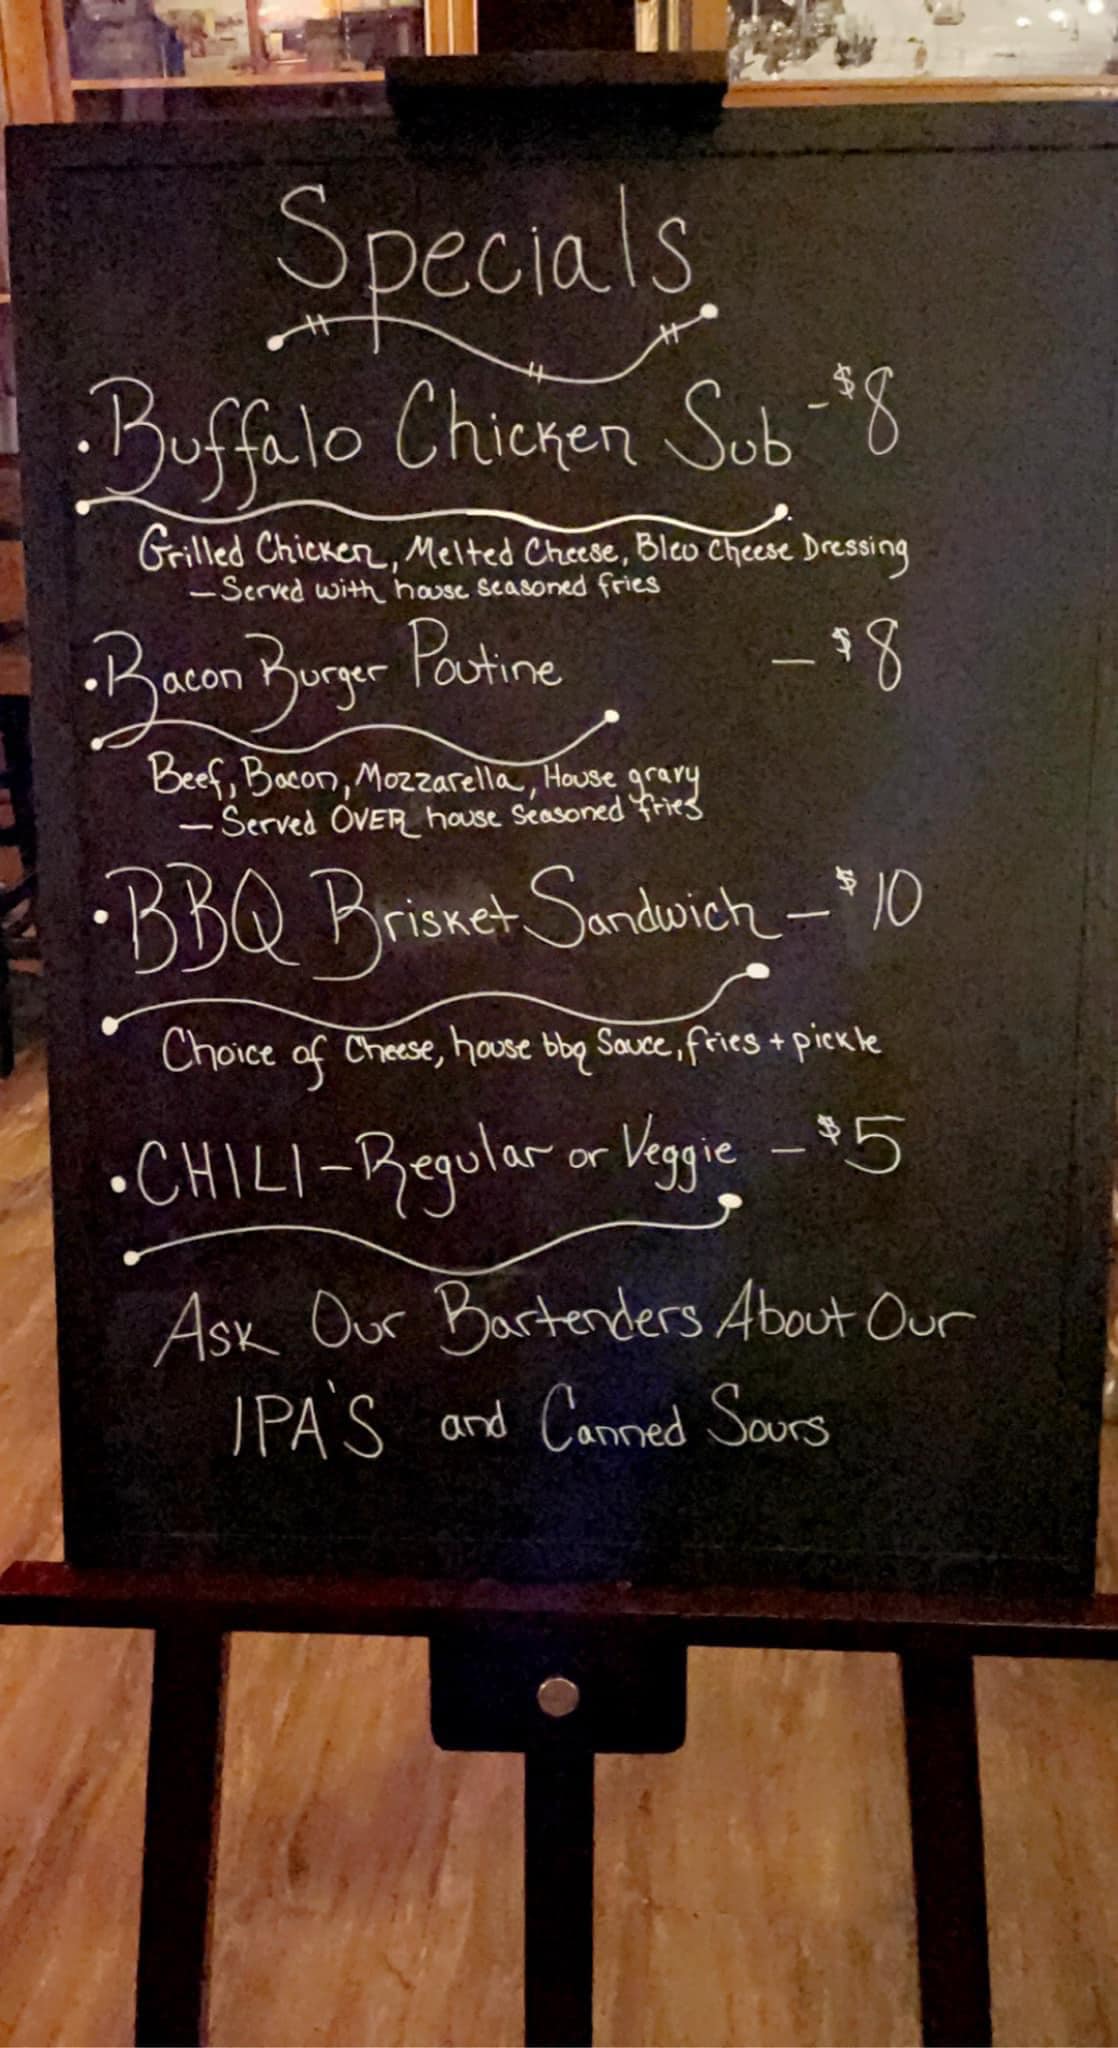 Specials
• Buffalo Chicken Sub - $8
Grilled Chicken, Melted Cheese, Bleu Cheese Dressing
— Served with house seasoned fries
• Bacon Burger Poutine — $8
Beef, Bacon, Mozzarella, House gravy
— Served OVER house seasoned fries
• BBQ Brisket Sandwich — $10
Choice of Cheese, house bbq Sauce, fries + pickle
• CHILI - Regular or Veggie — $5
Ask Our Bartenders About Our
IPA'S and Canned Sours